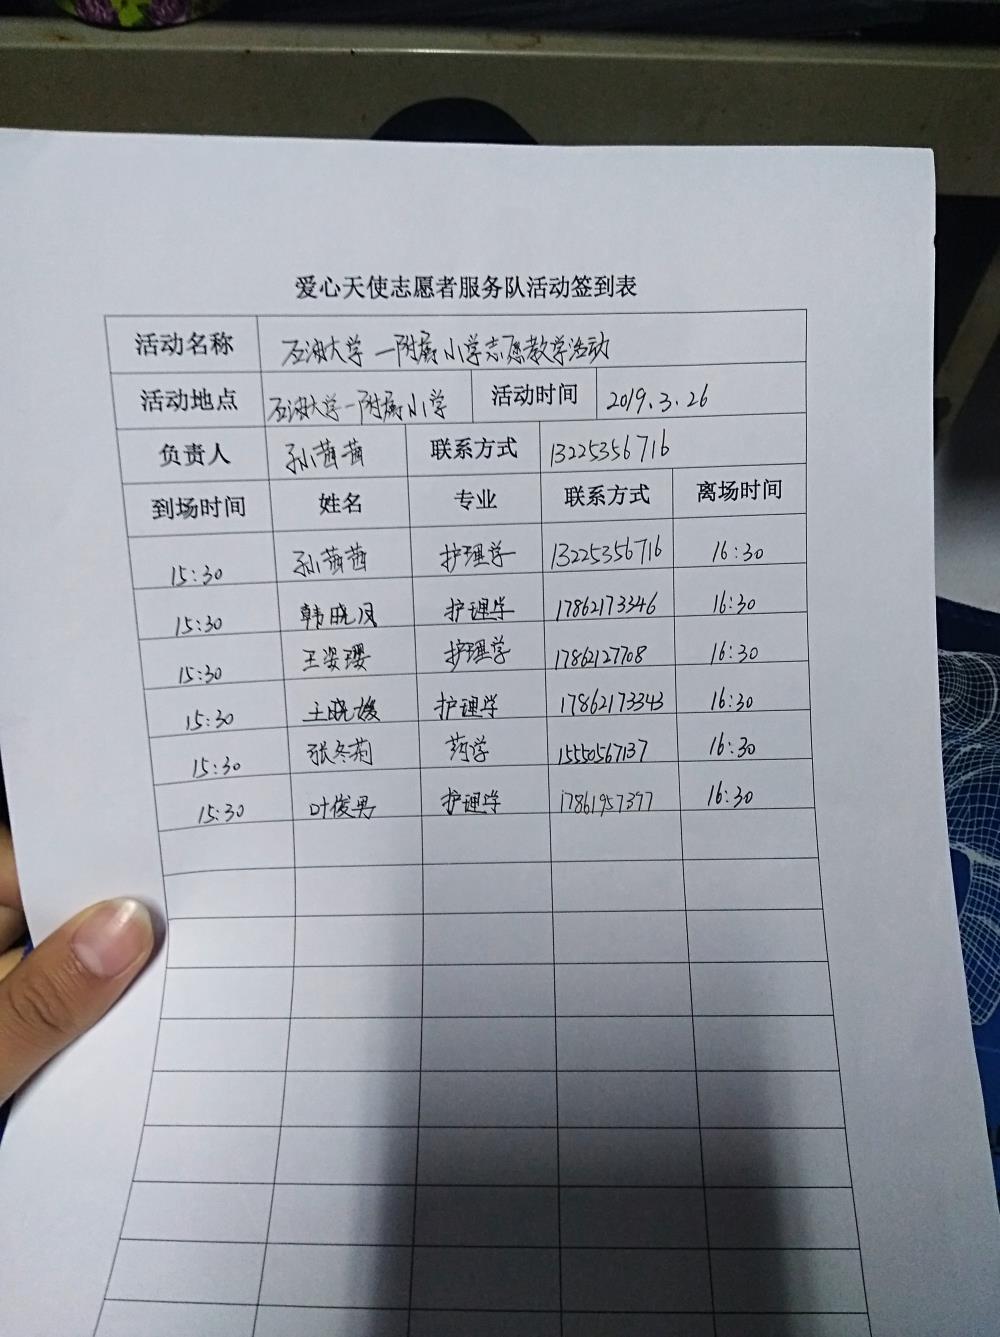 爱心天使志愿者服务队活动签到表
活动名称 石油大学一附属小学志愿教学活动
活动地点 石油大学一附属小学 活动时间 2019.3.26
负责人 孙茜茜 联系方式 13225356716
到场时间 姓名 专业 联系方式 离场时间
15:30 孙茜茜 护理学 13225356716 16:30
15:30 韩晓凤 护理学 17862173346 16:30
15:30 王姿璎 护理学 17862127708 16:30
15:30 王晓媛 护理学 17862173343 16:30
15:30 张冬菊 药学 15550567137 16:30
15:30 叶俊男 护理学 17861957397 16:30